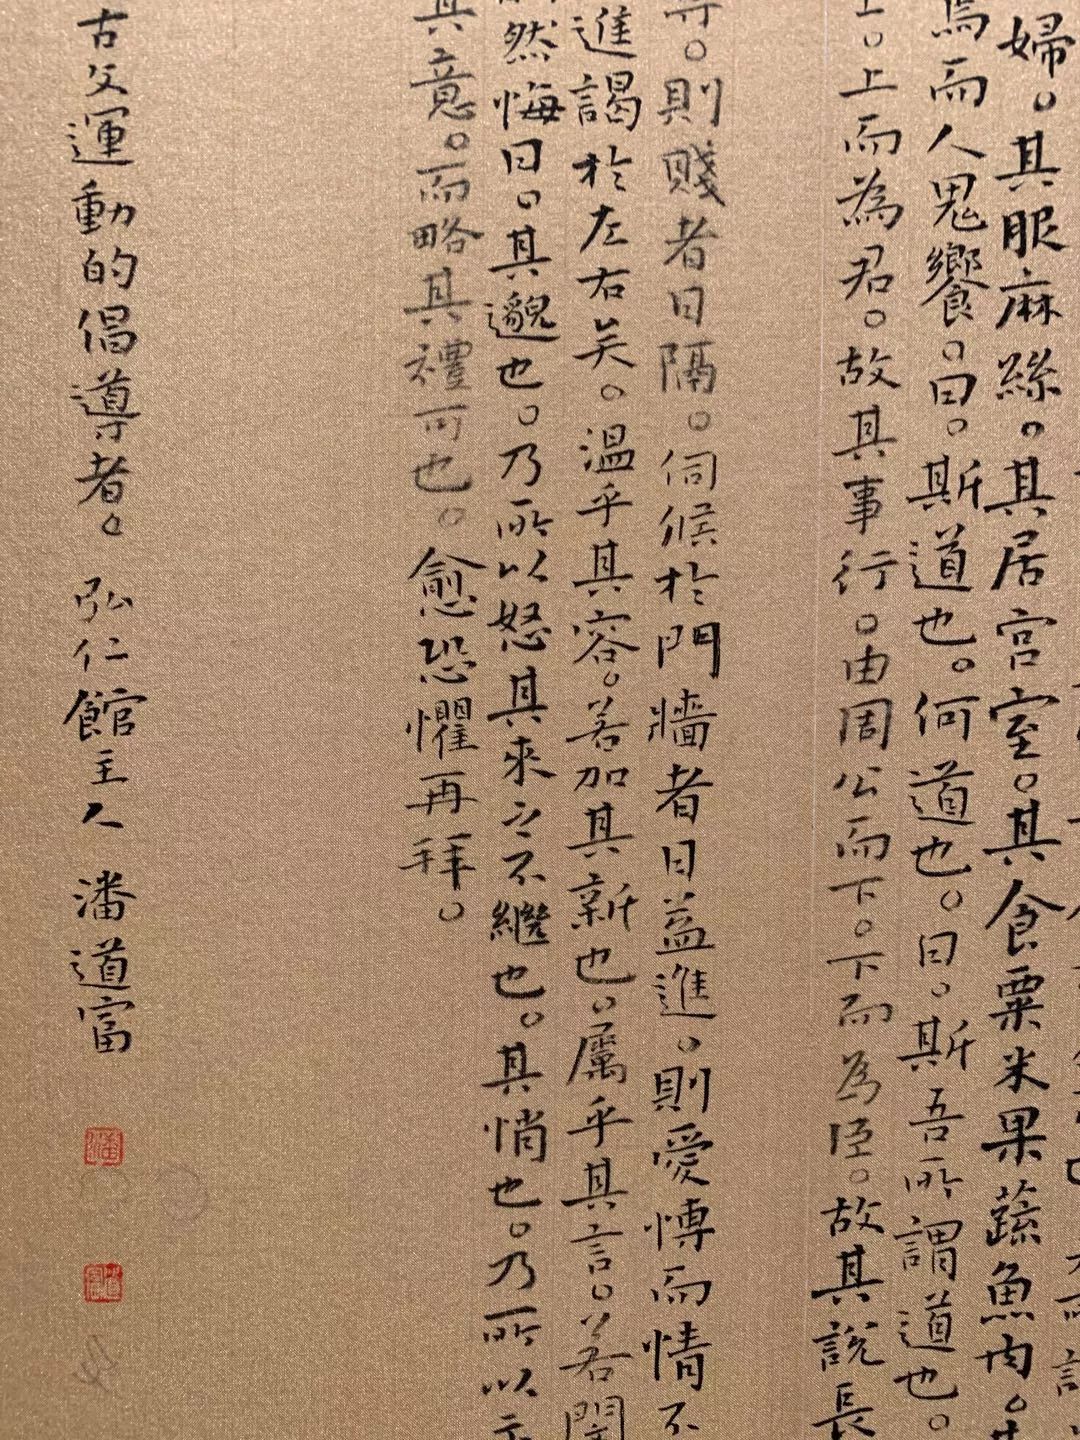 婦。其服麻絲。其居宮室。其食粟米果蔬魚肉。
焉而人鬼饗。曰。斯道也。何道也。曰。斯吾所謂道也。
上。上而為君。故其事行。由周公而下。下而為臣。故其說長
。則賤者日隔。伺候於門牆者日益進。則愛博而情不
進謁於左右矣。溫乎其容。若加其新也。屬乎其言。若閔
然悔曰。其邈也。乃所以怒其來之不繼也。其悄也。乃所以示
其意。而略其禮可也。愈恐懼再拜。
古文運動的倡導者。弘仁館主人 潘道富